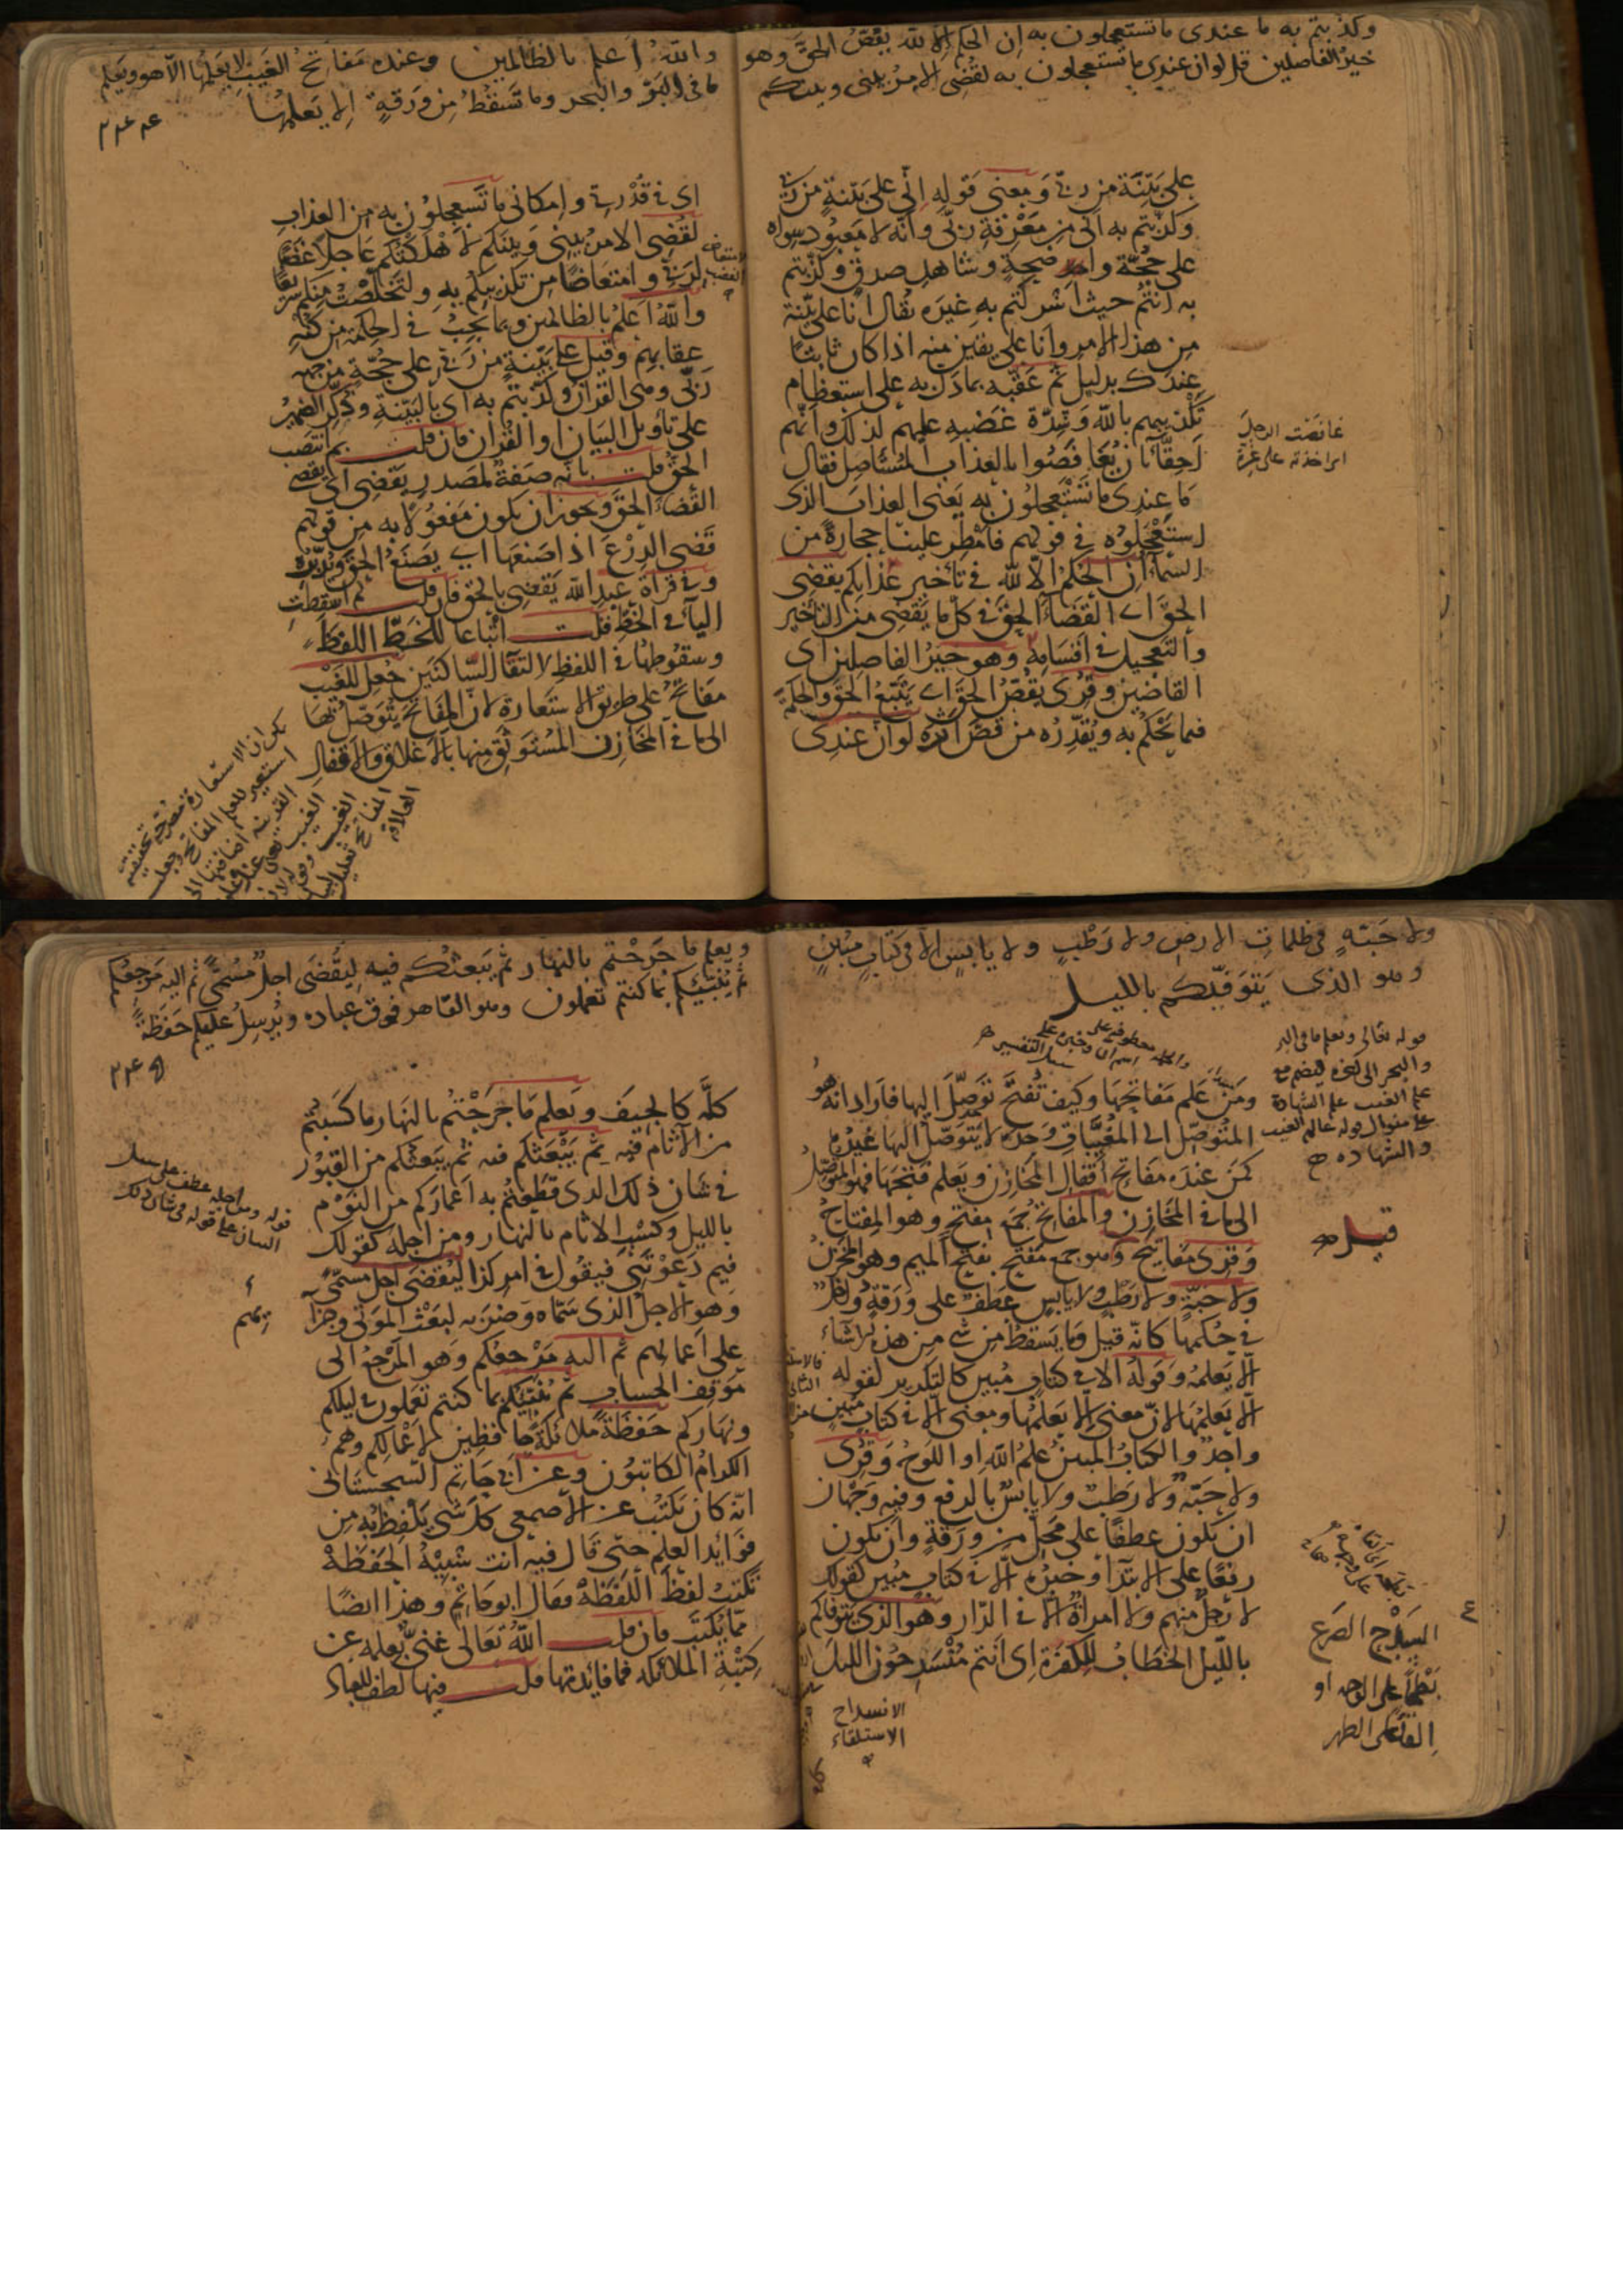 وكذبتم به ما عندى ما تستعجلون به إن الحكم إلا لله يقص الحق وهو
خير الفاصلين قل لو ان عندى ما تستعجلون به لقضى الامر بينى وبينكم
على بينة من ربى ومعنى قوله إنى على بينة من ربى
وكذبتم به انى من معرفة ربى وانه لا معبود سواه
على حجة واضحة وشاهد صدق وكذبتم
به انتم حيث اشركتم به غيره يقال انا على بينة
من هذا الامر وانا على يقين منه اذا كان ثابتا
عندك بدليل ثم عقبه بما دل به على استعظام
تكذيبهم بالله وشدة غضبه عليهم لذلك وانهم
احقاء بان يغافصوا بالعذاب المستأصل فقال
ما عندى ما تستعجلون به يعنى العذاب الذى
استعجلوه فى قولهم فأمطر علينا حجارة من
السماء ان الحكم الا لله فى تأخير عذابكم يقضى
الحق اى القضاء الحق فى كل ما يقضى من التأخير
والتعجيل فى اقسامه وهو خير الفاصلين اى
القاضين وقرئ يقص الحق اى يتبع الحق والحكمة
فيما يحكم به ويقدره من قص اثره لو ان عندى
غافصت الرجل
اى اخذته على غرة
والله أعلم بالظالمين وعنده مفاتح الغيب لا يعلمها الا هو ويعلم
ما فى البر والبحر وما تسقط من ورقة إلا يعلمها
اى فى قدرتى وامكانى ما تستعجلون به من العذاب
لقضى الامر بينى وبينكم لاهلكتكم عاجلا غضبا
لربى وامتعاضا من تكذيبكم به ولتخلصت منكم سريعا
والله اعلم بالظالمين وبما يجب فى الحكمة من كنه
عقابهم وقيل على بينة من ربى على حجة من جهة
ربى وهى القرآن وكذبتم به اى بالبينة وذكر الضمير
على تأويل البيان او القرآن فان قلت بم انتصب
الحق قلت بانه صفة لمصدر يقضى اى يقضى
القضاء الحق ويجوز ان يكون مفعولا به من قولهم
قضى الدرع اذا صنعها اى يصنع الحق ويدبره
وفى قراءة عبد الله يقضى بالحق فان قلت لم اسقطت
الياء فى الخط قلت اتباعا للخط اللفظ
وسقوطها فى اللفظ لالتقاء الساكنين جعل للغيب
مفاتح على طريق الاستعارة لان المفاتح يتوصل بها
الى ما فى المخازن المستوثق منها بالاغلاق والاقفال
ولا حبة فى ظلمات الارض ولا رطب ولا يابس الا فى كتاب مبين
وهو الذى يتوفيكم بالليل
قوله تعالى ويعلم ما فى البر
والبحر الى
علم الغيب علم الشهادة
على منوال قوله عالم الغيب
والشهادة
ومن علم مفاتحها وكيف تفتح توصل اليها فاراد انه هو
المتوصل الى المغيبات وحده لا يتوصل اليها غيره
كمن عنده مفاتح اقفال المخازن ويعلم فتحها فهو المتوصل
الى ما فى المخازن والمفاتح جمع مفتح وهو المفتاح
وقرئ مفاتيح وهو جمع مفتح بفتح الميم وهو المخزن
ولا حبة ولا رطب ولا يابس عطف على ورقة وداخل
فى حكمها كانه قيل وما يسقط من شئ من هذه الاشياء
الا يعلمه وقوله الا فى كتاب مبين كالتكرير لقوله
الا يعلمها لان معنى الا يعلمها ومعنى الا فى كتاب مبين
واحد والكتاب المبين علم الله او اللوح وقرئ
ولا حبة ولا رطب ولا يابس بالرفع وفيه وجهان
ان يكون عطفا على محل من ورقة وان يكون
رفعا على الابتداء وخبره الا فى كتاب مبين كقولك
لا رجل منهم ولا امرأة الا فى الدار وهو الذى يتوفاكم
بالليل الخطاب للكفرة اى انتم منسدحون الليل
قيل
السدح الصرع
بطحا على الوجه او
القاء على الظهر
الانسداح
الاستلقاء
ويعلم ما جرحتم بالنهار ثم يبعثكم فيه ليقضى اجل مسمى ثم اليه مرجعكم
ثم ينبئكم بما كنتم تعملون وهو القاهر فوق عباده ويرسل عليكم حفظة
كله كالجيف ويعلم ما جرحتم بالنهار ما كسبتم
من الآثام فيه ثم يبعثكم فيه ثم يبعثكم من القبور
فى شان ذلك الذى قطعتم به اعماركم من النوم
بالليل وكسب الآثام بالنهار ومن اجله كقولك
فيم دعوتنى فيقول فى امر كذا ليقضى اجل مسمى
وهو الاجل الذى سماه وضربه لبعث الموتى وجزائهم
على اعمالهم ثم اليه مرجعكم وهو المرجع الى
موقف الحساب ثم ينبئكم بما كنتم تعملون فى ليلكم
ونهاركم حفظة ملائكة حافظين لاعمالكم وهم
الكرام الكاتبون وعن ابى حاتم السجستانى
انه كان يكتب عن الاصمعى كل شئ يلفظ به من
فوائد العلم حتى قال فيه انت شبيه الحفظة
تكتب لفظ اللفظة فقال ابو حاتم وهذا ايضا
مما يكتب فان قلت الله تعالى غنى بعلمه عن
كتبة الملائكة فما فائدتها قلت فيها لطف للعباد
قوله ومن اجله عطف على سبيل
البيان على قوله فى شان ذلك